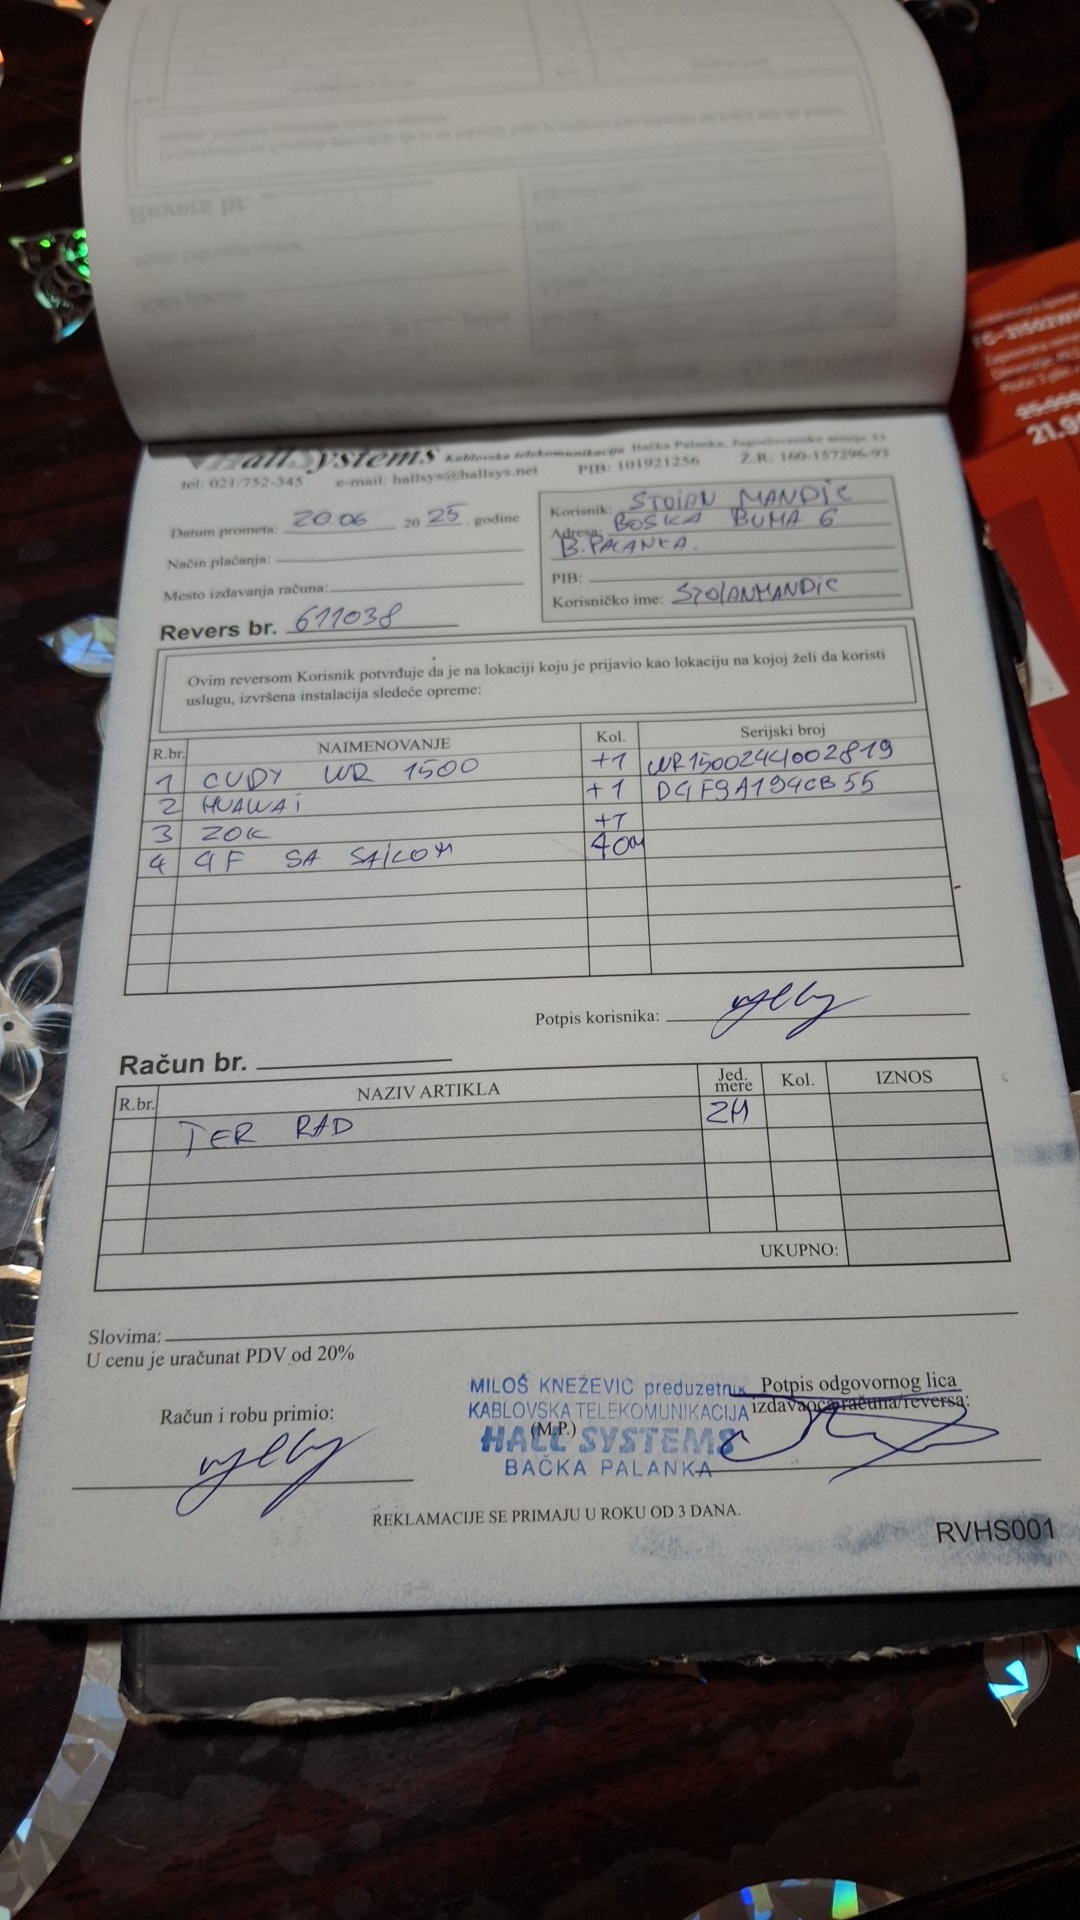 HallSystems Kablovska telekomunikacija Bačka Palanka, Jugoslovenske armije 33
tel: 021/752-345 e-mail: hallsys@hallsys.net PIB: 101921256 Ž.R: 160-157296-93
Datum prometa: 20.06 20 25. godine
Način plaćanja:
Mesto izdavanja računa:
Revers br. 611038
Korisnik: STOJAN MANDIĆ
Adresa: BOŠKA BUHA 6
B. PALANKA.
PIB:
Korisničko ime: STOJANMANDIC
Ovim reversom Korisnik potvrđuje da je na lokaciji koju je prijavio kao lokaciju na kojoj želi da koristi
uslugu, izvršena instalacija sledeće opreme:
R.br. NAIMENOVANJE Kol. Serijski broj
1 CUDY WR 1500 +1 WR1500244002819
2 HUAWAI +1 D4F9A194CB55
3 ZOK +1
4 4F SA SAJLOM 40m
Potpis korisnika:
Račun br.
R.br. NAZIV ARTIKLA Jed. mere Kol. IZNOS
TER RAD 2H
UKUPNO:
Slovima:
U cenu je uračunat PDV od 20%
Račun i robu primio:
MILOŠ KNEŽEVIĆ preduzetnik
KABLOVSKA TELEKOMUNIKACIJA
(M.P.)
HALL SYSTEMS
BAČKA PALANKA
Potpis odgovornog lica
izdavaoca računa/reversa:
REKLAMACIJE SE PRIMAJU U ROKU OD 3 DANA.
RVHS001
Revers br.
21.9